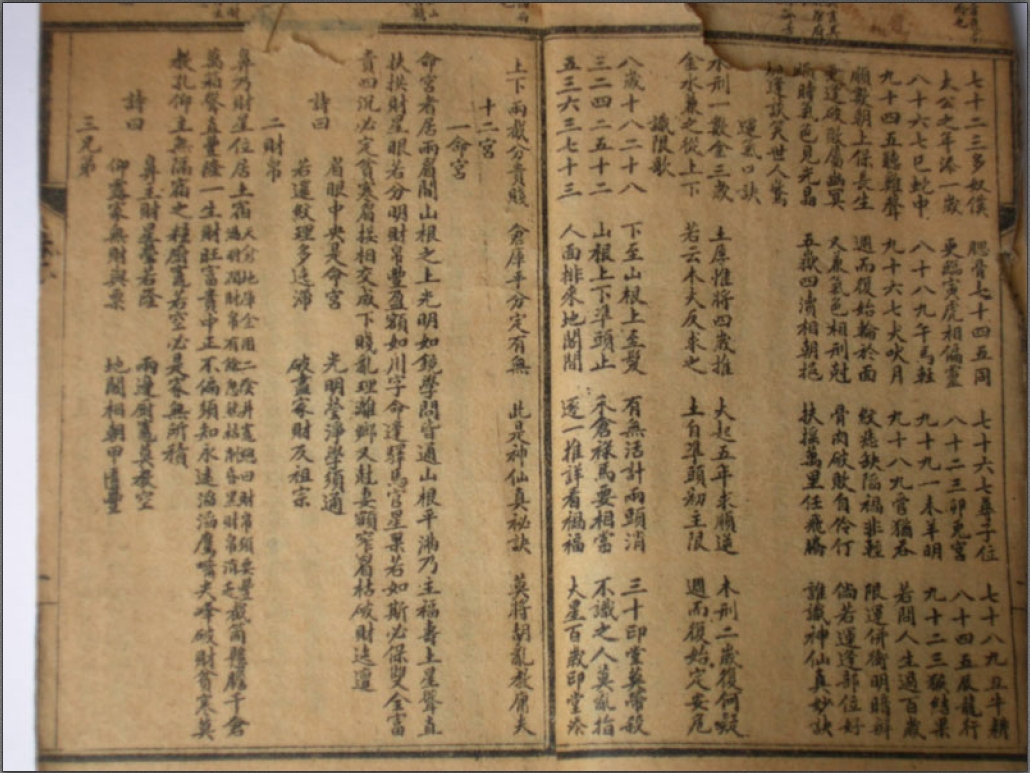 七十二三多奴僕 腮骨七十四五同 七十六七尋子位 七十八九丑牛耕
太公之年添一歲 更臨寅虎相偏靈 八十二三卯兔宮 八十四五辰龍行
八十六七巳蛇中 八十八九午馬輕 九十九一未羊明 九十二三猴結果
九十四五聽雞聲 九十六七犬吠月 九十八九亥猶吞 若問人生過百歲
順數朝上保長生 週而復始輪於面 紋痣缺陷禍非輕 限運併衝明暗辨
更逢破敗屬幽冥 又兼氣色相刑尅 骨肉破敗自伶仃 倘若運逢部位好
順時氣色見光晶 五嶽四瀆相朝挹 扶搖萬里任飛騰 誰識神仙真妙訣
逢談笑世人驚
運氣口訣
水刑一數金三歲 土厚惟將四歲推 火起五年求順逆 木刑二歲復何疑
金水兼之從上下 若云木火反來之 土自準頭初主限 週而復始定安危
識限歌
八歲十八二十八 下至山根上至髮 有無活計兩頭消 三十印堂莫帶殺
三二四二五十二 山根上下準頭止 禾倉祿馬要相當 不識之人莫亂指
五三六三七十三 人面排來地閣間 逐一推詳看禍福 火星百歲印堂添
上下兩截分貴賤 倉庫平分定有無 此是神仙真秘訣 莫將胡亂教庸夫
十二宮
一命宮
命宮者居兩眉間山根之上光明如鏡學問皆通山根平滿乃主福壽土星聳直
扶拱財星眼若分明財帛豐盈額如川字命逢驛馬官星果若如斯必保雙全富
貴凹沉必定貧寒眉接相交成下賤亂理離鄉又尅妻額窄眉枯破財迍邅
詩曰 眉眼中央是命宮 光明瑩淨學須通
若還紋理多迍滯 破盡家財及祖宗
二財帛
鼻乃財星位居土宿天倉地庫金甲二陰井竈總曰財帛須要豐截筒懸膽千倉
萬箱聳直豐隆一生財旺富貴中正不偏須知永遠滔滔鷹嘴尖峰破財貧寒莫
教孔仰主無隔宿之糧廚竈若空必是家無所積
詩曰 鼻主財星瑩若隆 兩邊廚竈莫教空
仰露家無財與粟 地閣相朝甲匱豐
三兄弟